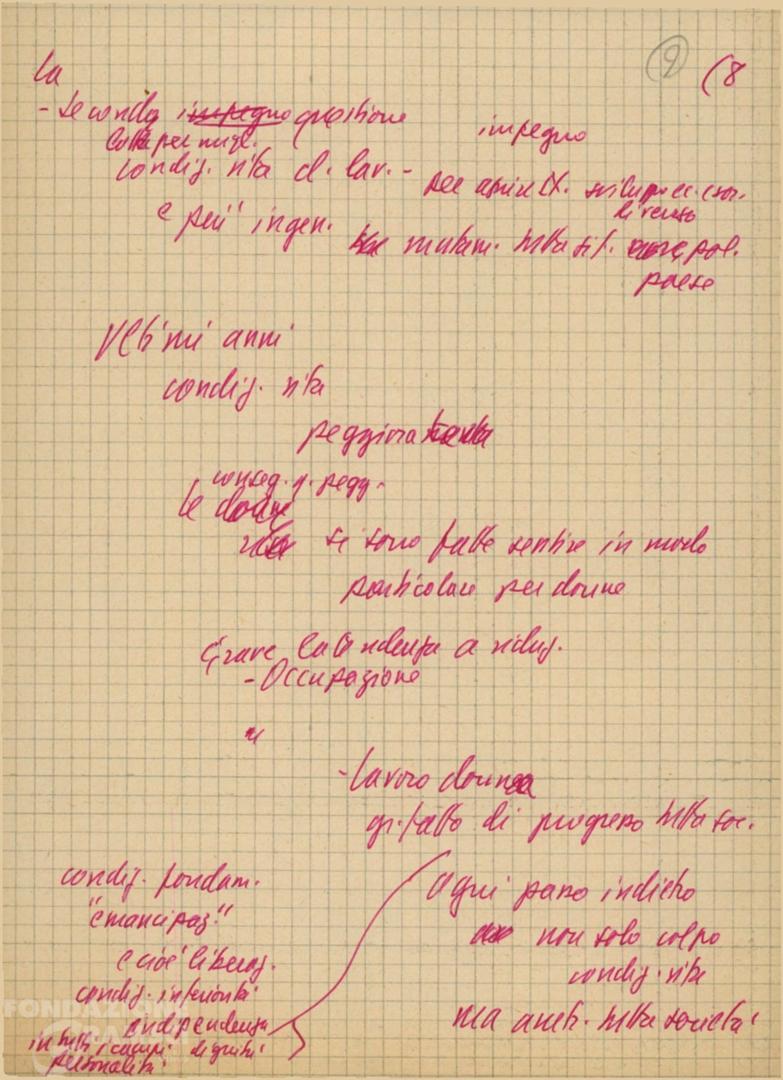 9 (8
la
- seconda impegno questione
impegno
lotta per migl.
condiz. vita d. lav. -
per svilupp. ec.
e più in gen.
mutam. tutta sit. pol.
paese
Ultimi anni
condiz. vita
peggiora
conseg. q. pegg.
le donne
si sono fatte sentire in modo
particolare per donne
Grave la tendenza a riduz.
- Occupazione
- lavoro donna
gr. fatto di progresso tutta soc.
condiz. fondam.
"emancipaz"
e cioè liberaz.
condiz. inferiorità
indipendenza
in tutti i campi dignità
personalità
Ogni passo indietro
non solo colpo
condiz. vita
ma anch. tutta società
FONDAZIO